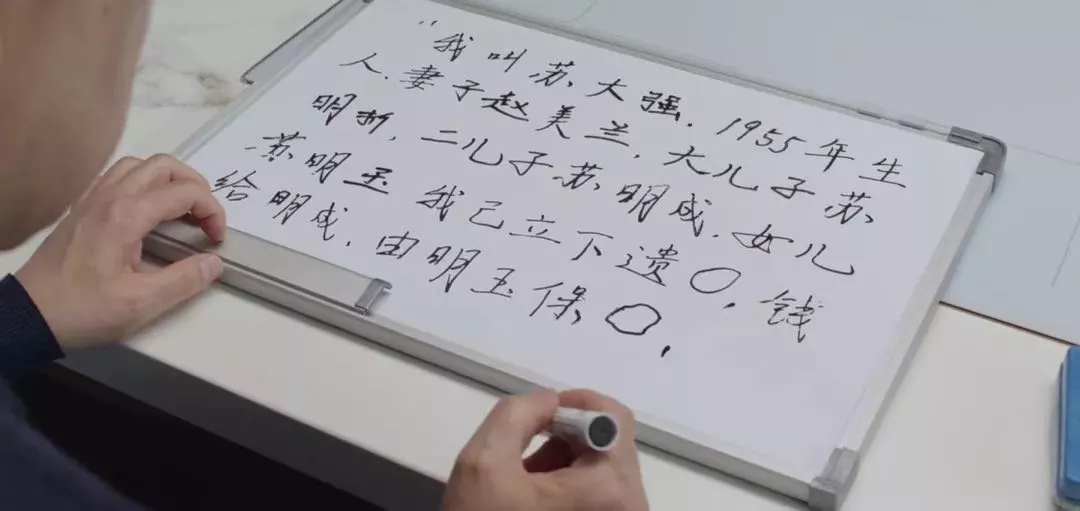 “我叫苏大强.1955年生
人.妻子赵美兰,大儿子苏
明哲,二儿子苏明成.女儿
苏明玉 我已立下遗○,钱
给明成.由明玉保○,